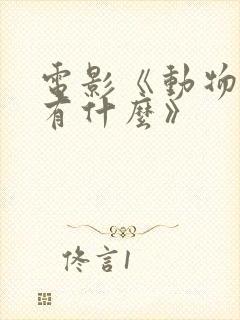 電影《動物
有什麼》
佟言1